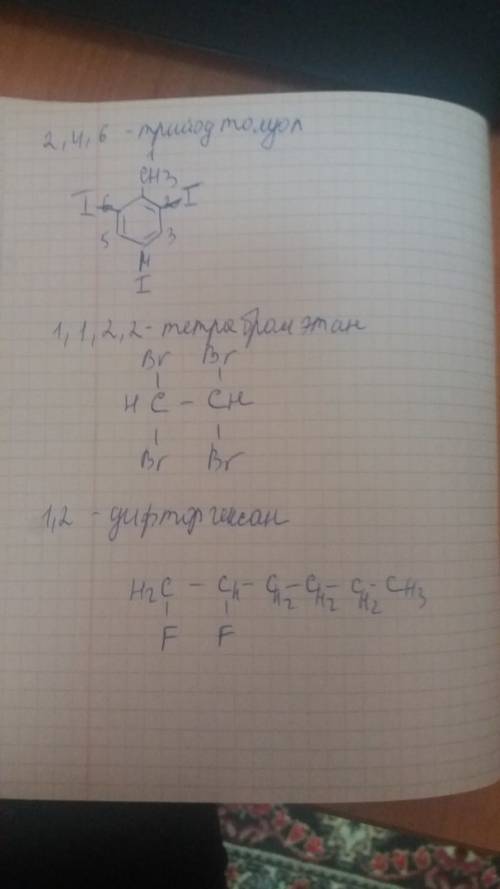 2,4,6 - трийод толуол
1
CH3
I 6 2 I
5 3
4
I
1,1,2,2 - тетрабромэтан
Br Br
HC - CH
Br Br
1,2 - дифторгексан
H2C - CH - CH2 - CH2 - CH2 - CH3
F F